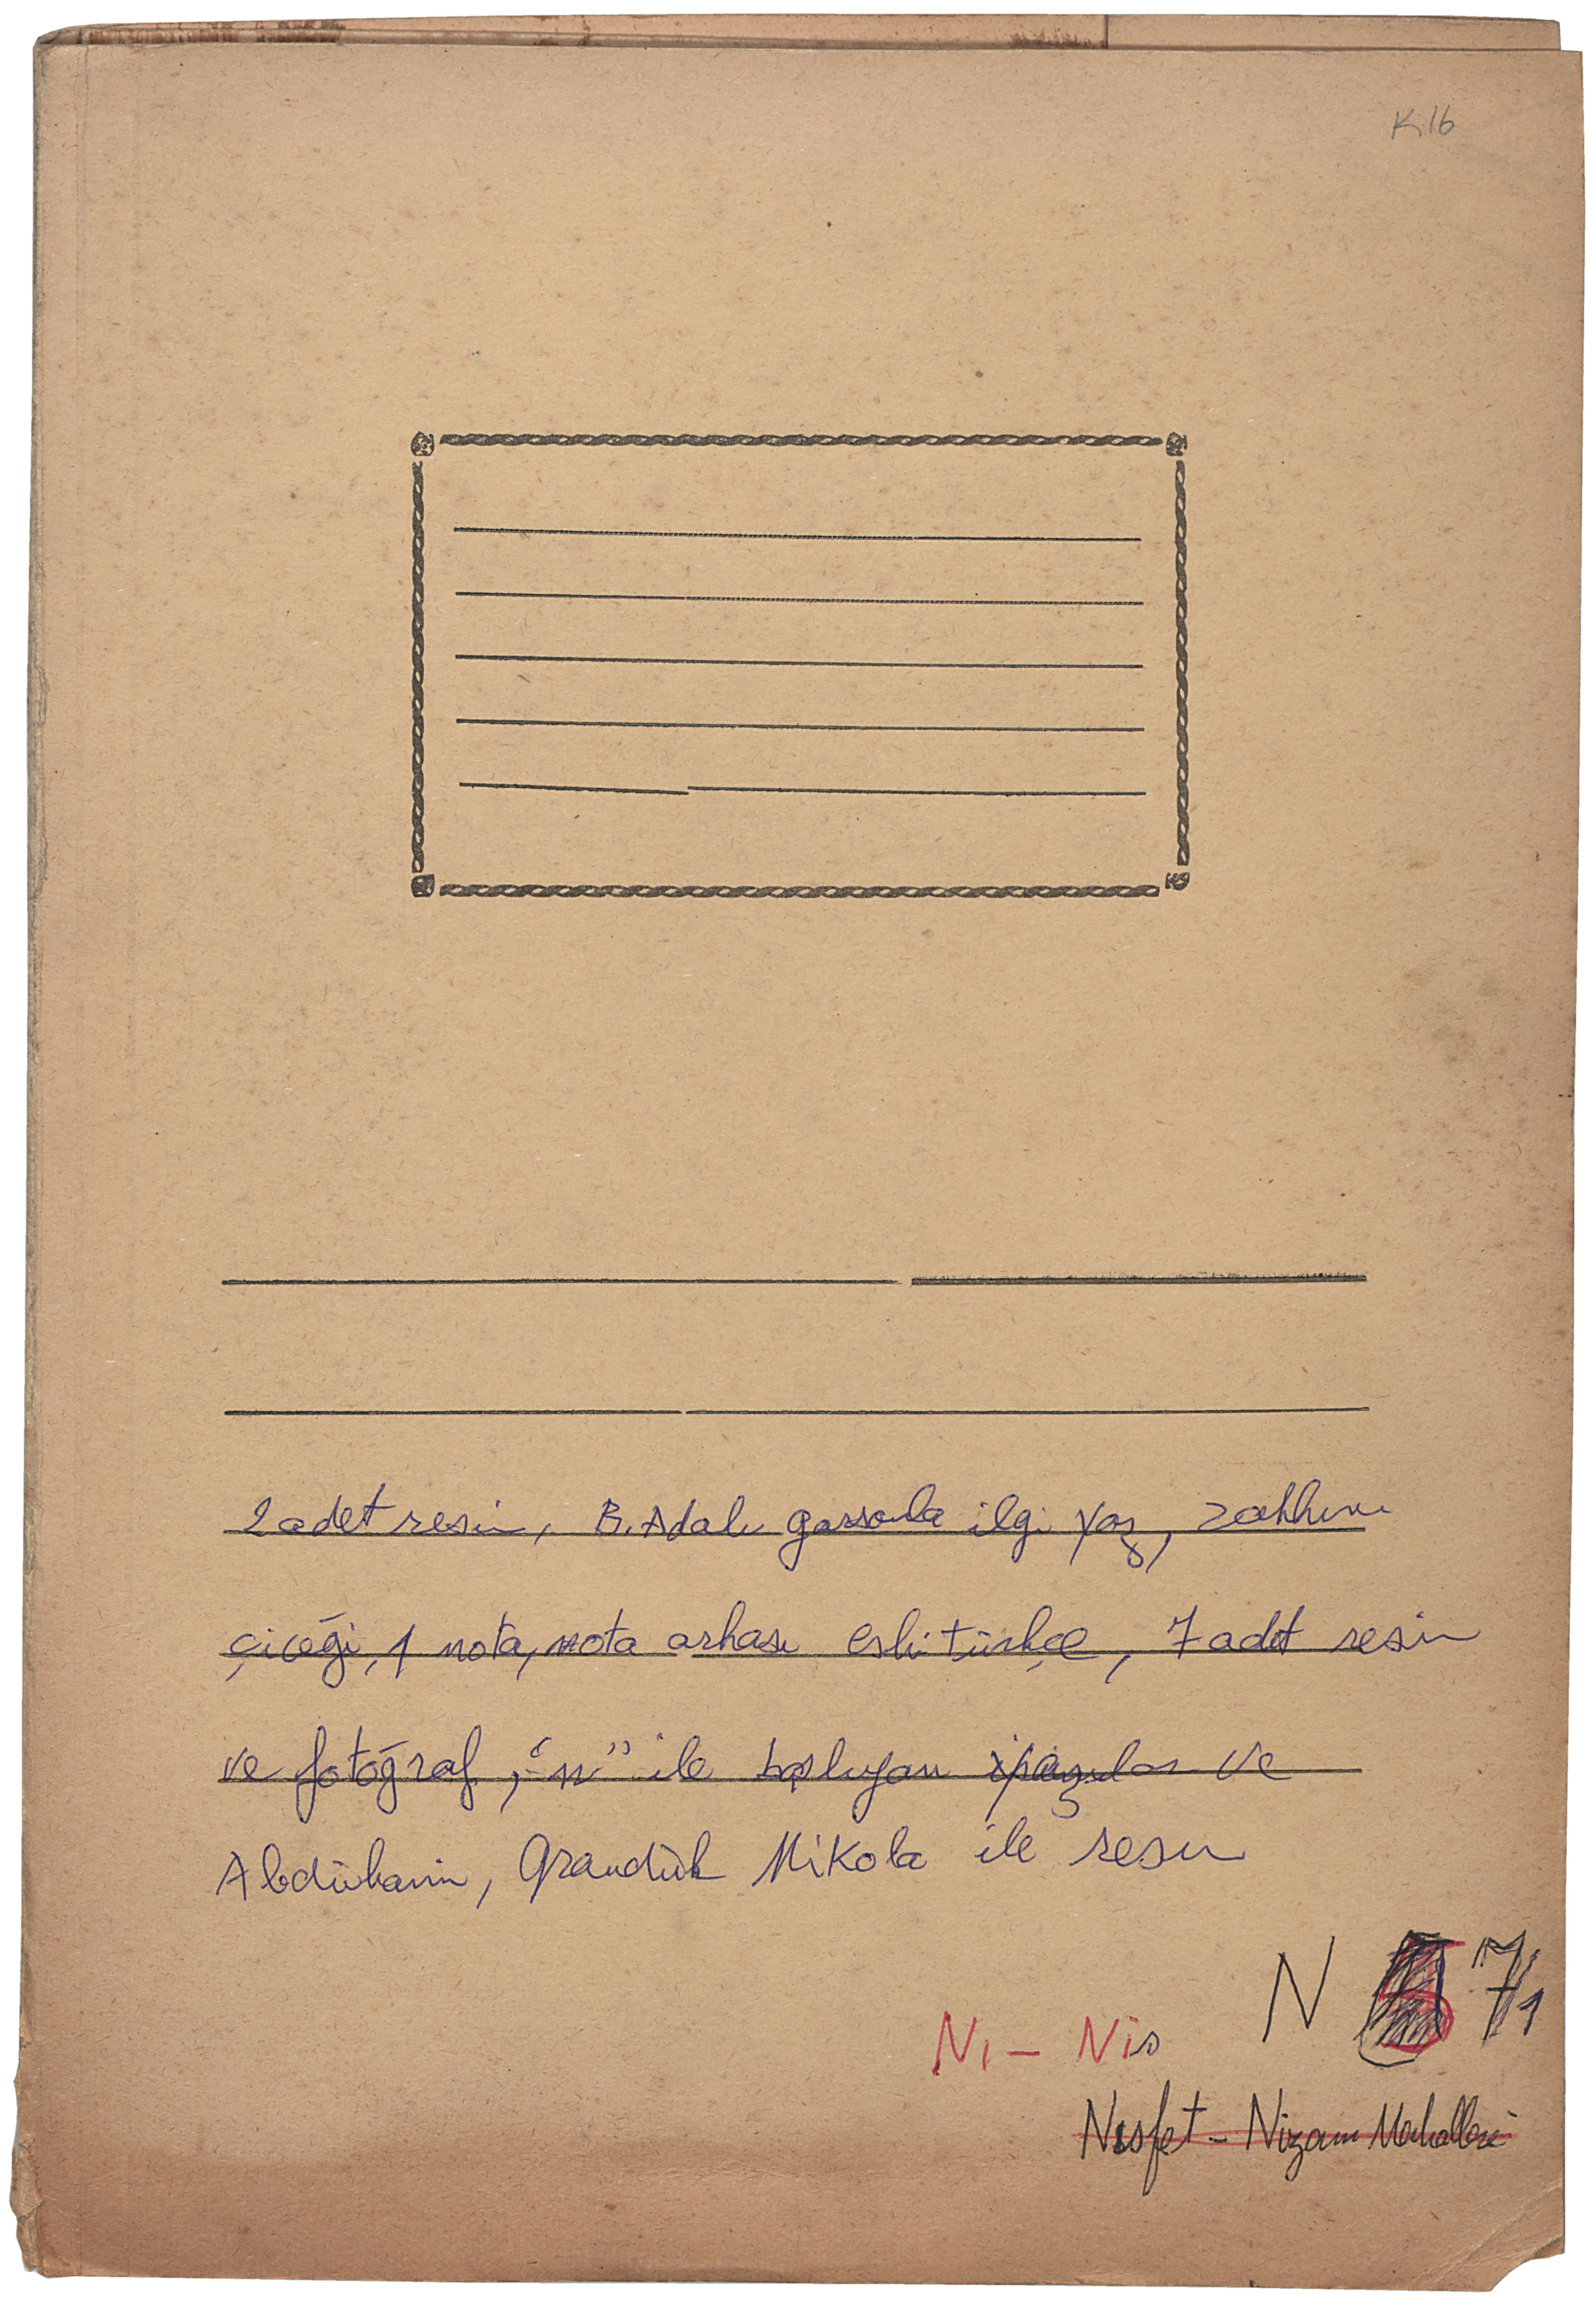 K.16
2 adet resim, B. Adalı garsonla ilgi yaz, zakkum
çiçeği, 1 nota, nota arkası eski türkçe, 7 adet resim
ve fotoğraf, "n" ile başlayan yazılar ve
Abdülhamin, Grandük Nikola ile resim
N 7/1
Ni - Nis
Nısfet - Nizam Mahallesi